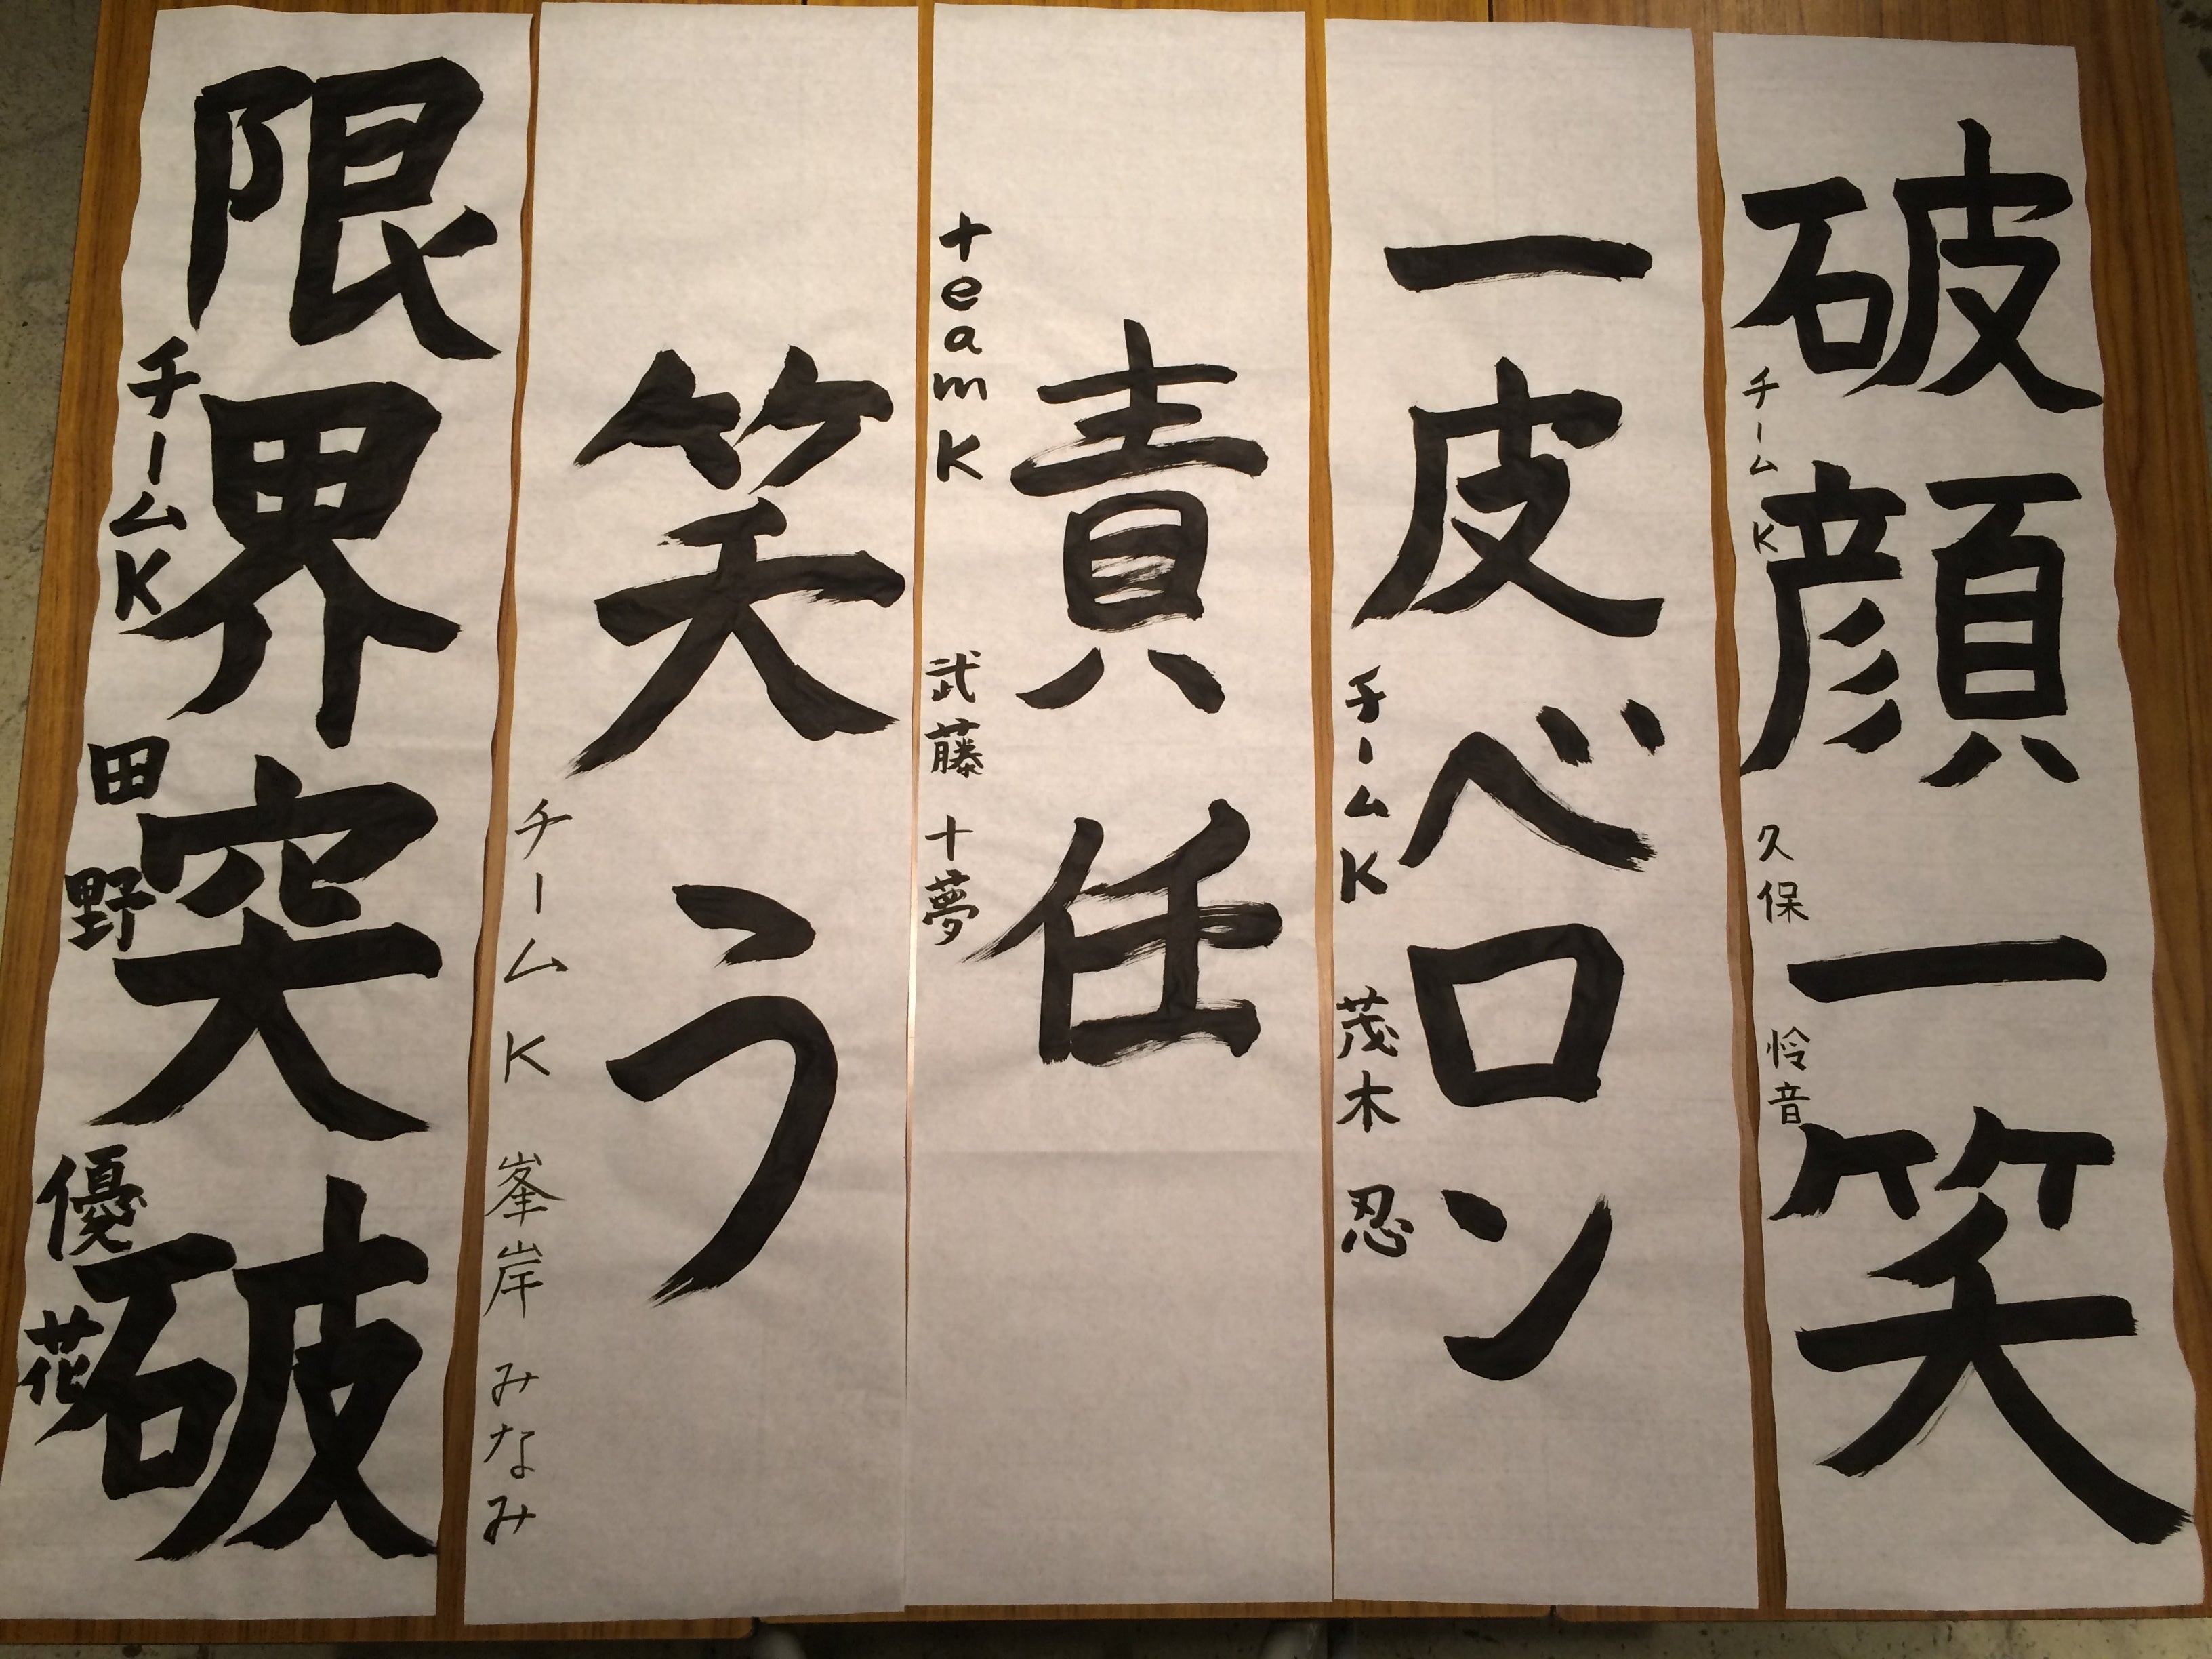 破顔一笑
チームK 久保 怜音
一皮ベロン
チームK 茂木 忍
責任
teamK 武藤 十夢
笑う
チームK 峯岸 みなみ
限界突破
チームK 田野 優花